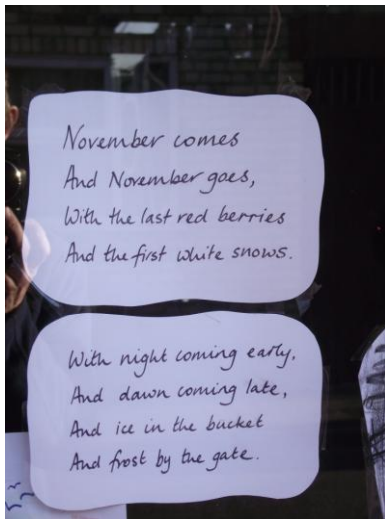 November comes
And November goes,
With the last red berries
And the first white snows.
With night coming early,
And dawn coming late,
And ice in the bucket
And frost by the gate.